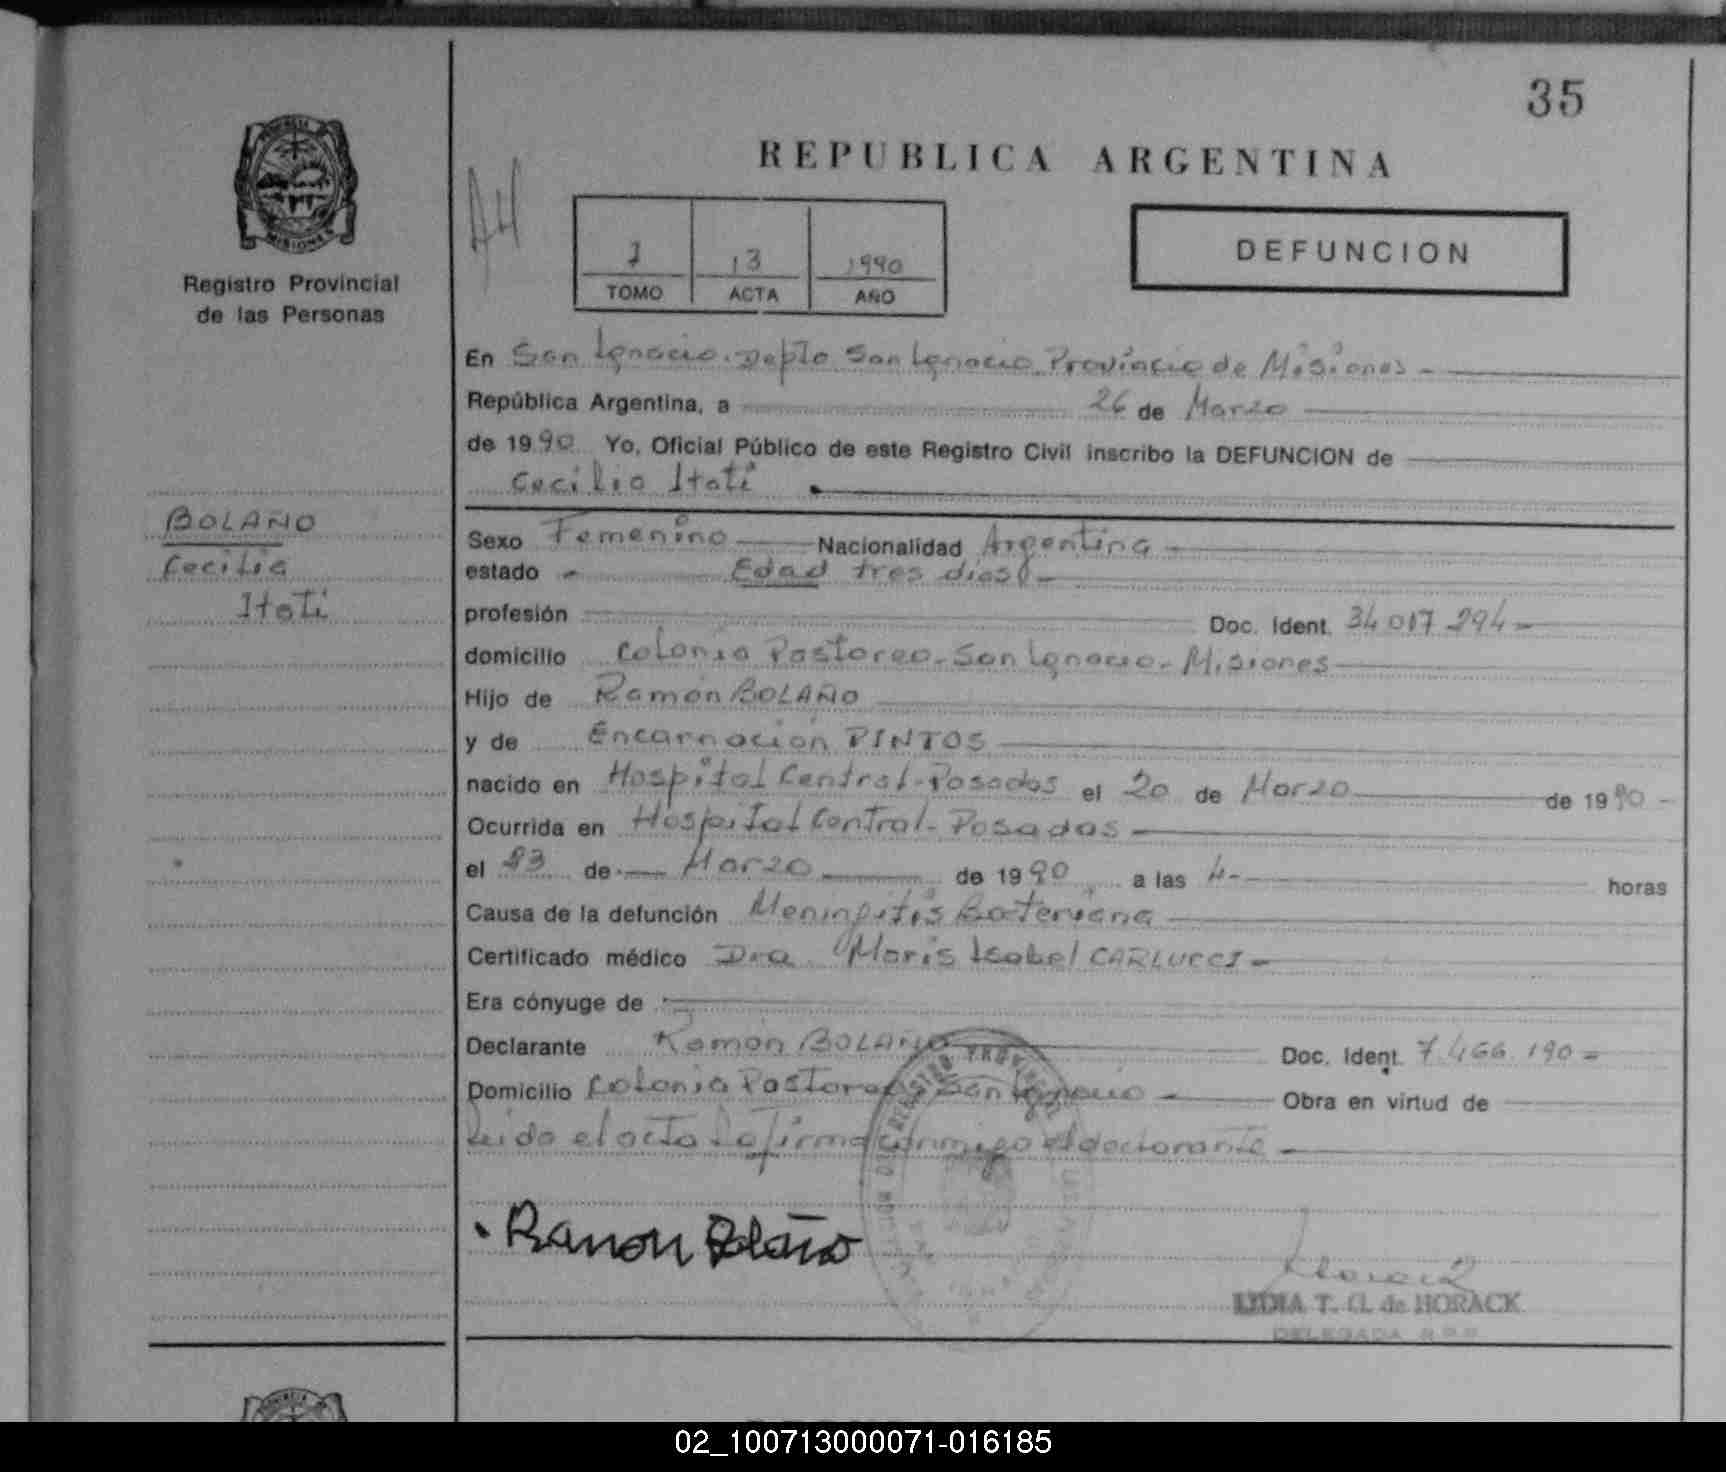 35
REPUBLICA ARGENTINA
PROVINCIA DE
MISIONES
AH
DEFUNCION
1 13 1990
TOMO ACTA AÑO
Registro Provincial
de las Personas
En San Ignacio. Depto San Ignacio Provincia de Misiones -
República Argentina, a 26 de Marzo
de 1990 Yo, Oficial Público de este Registro Civil inscribo la DEFUNCION de
Cecilia Itati
BOLAÑO
Cecilia
Itati
Sexo Femenino Nacionalidad Argentina -
estado - Edad tres dias -
profesión Doc. Ident. 34 017 294 -
domicilio Colonia Pastoreo - San Ignacio - Misiones
Hijo de Ramón BOLAÑO
y de Encarnación PINTOS
nacido en Hospital Central - Posadas el 20 de Marzo de 1990 -
Ocurrida en Hospital Central - Posadas -
el 23 de Marzo de 1990 a las 4 - horas
Causa de la defunción Meningitis Bacteriana
Certificado médico Dra. Maris Isabel CARLUCCI -
Era cónyuge de
Declarante Ramón BOLAÑO Doc. Ident. 7.466.190 -
Domicilio Colonia Pastoreo San Ignacio - Obra en virtud de
Leido el acta la firma conmigo el declarante -
Ramon Bolaño
LIDIA T. G. de HORACK
DELEGADA R.P.P.
02_100713000071-016185